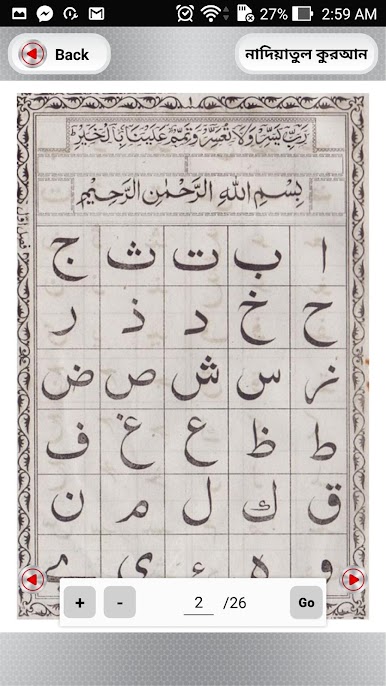 27% 2:59 AM
Back
নাদিয়াতুল কুরআন
رَبِّ يَسِّرْ وَلَا تُعَسِّرْ وَتَمِّمْ عَلَيْنَا بِالْخَيْرِ
بِسْمِ اللهِ الرَّحْمٰنِ الرَّحِيْمِ
ا ب ت ث ج
ح خ د ذ ر
ز س ش ص ض
ط ظ ع غ ف
ق ك ل م ن
و ه ء ي ے
+ - 2 /26 Go